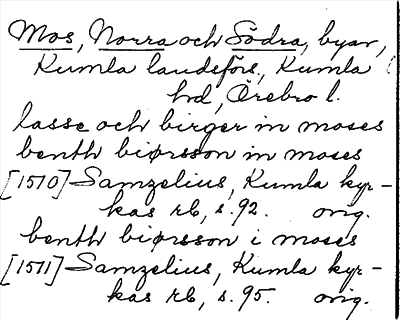 Mos, Norra och Södra, byar,
Kumla landsförs., Kumla
hd, Örebro l.
lasse och birger in moses
benth biørsson in moses
[1510] Samzelius, Kumla kyr-
kas rb, s. 92. orig.
benth biørsson i moses
[1511] Samzelius, Kumla kyr-
kas rb, s. 95. orig.